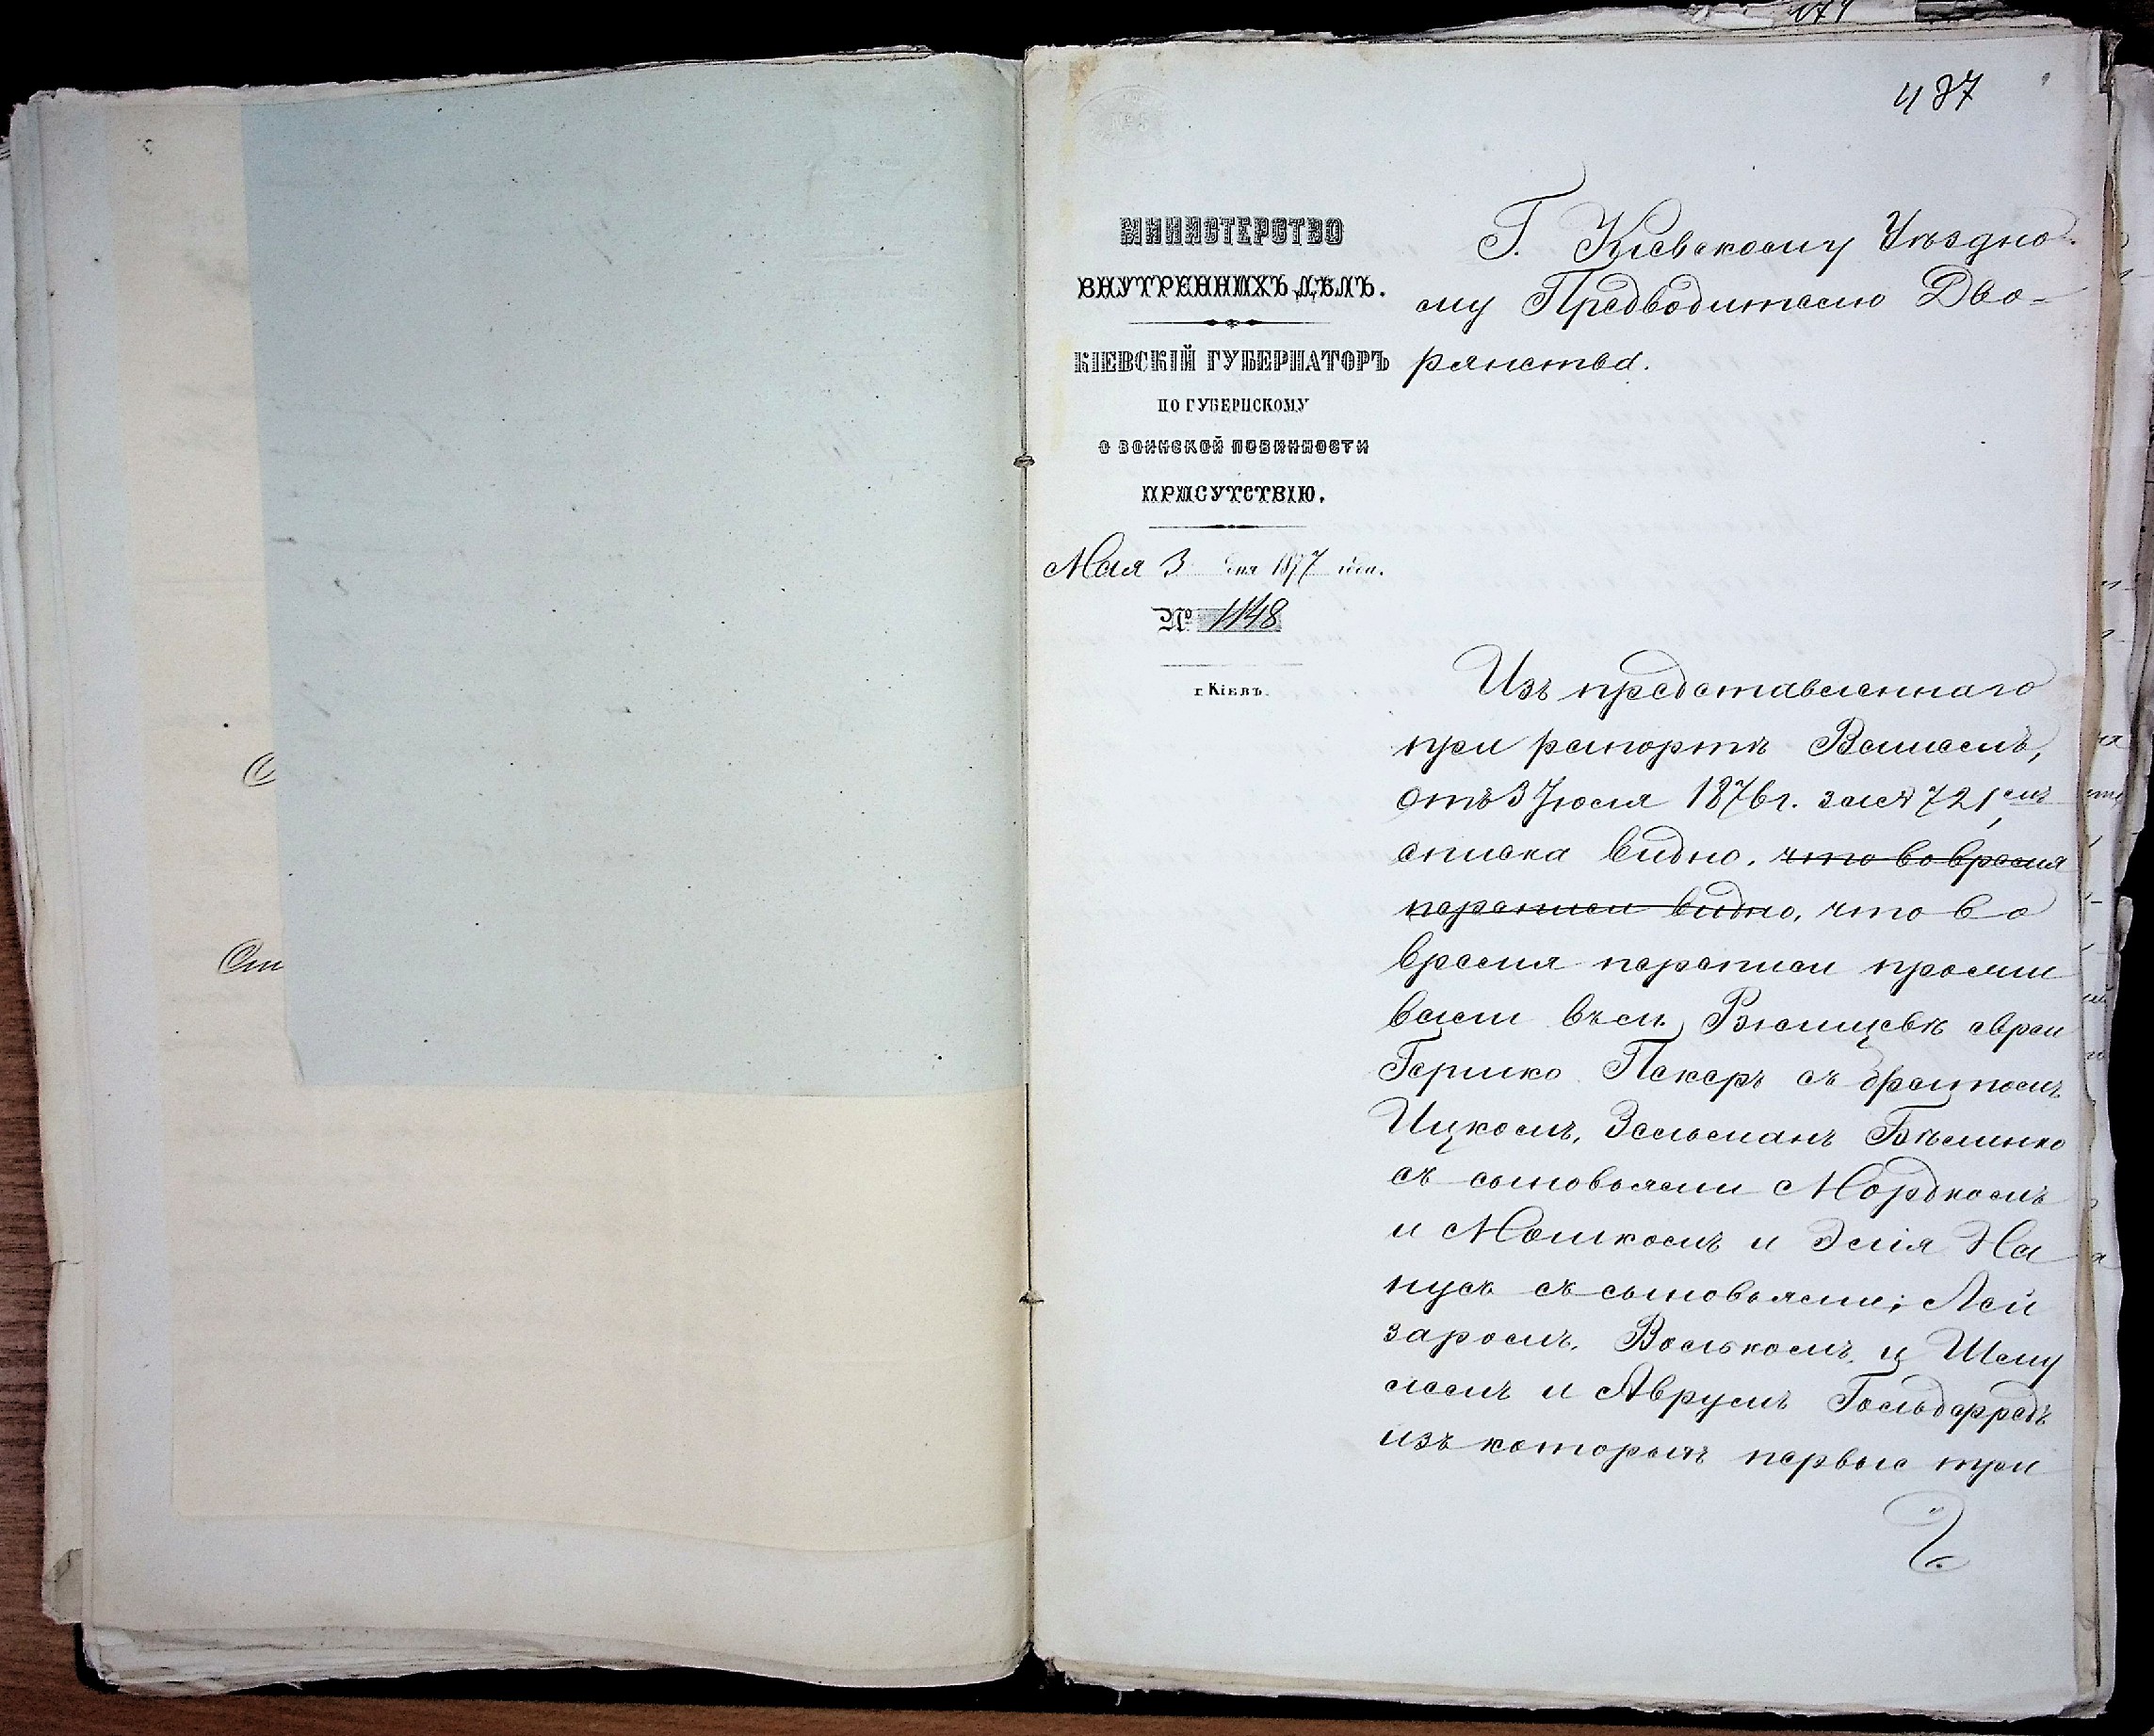 174
487
МИНИСТЕРСТВО
ВНУТРЕННИХЪ ДѢЛЪ.
КІЕВСКІЙ ГУБЕРНАТОРЪ
ПО ГУБЕРНСКОМУ
О ВОИНСКОЙ ПОВИННОСТИ
ПРИСУТСТВІЮ.
Мая 3 дня 1877 года.
№ 1148
г. Кіевъ.
Г. Кіевскому Уѣздно-
му Предводителю Дво-
рянства.
Изъ представленнаго
при рапортѣ Вашемъ,
отъ 3 Іюля 1876 г. за № 721,
списка видно, что во время
переписи видно, что во
время переписи прожи
вали въ с. евреи
Гершко Пекеръ съ братомъ
Ицкомъ, Зельманъ Бѣленко
съ сыновьями Мордкомъ
и Мошкомъ и Элія На
пусъ съ сыновьями: Лей
заромъ, Волькомъ и Шму
лемъ и Аврумъ
изъ которыхъ первые три
От